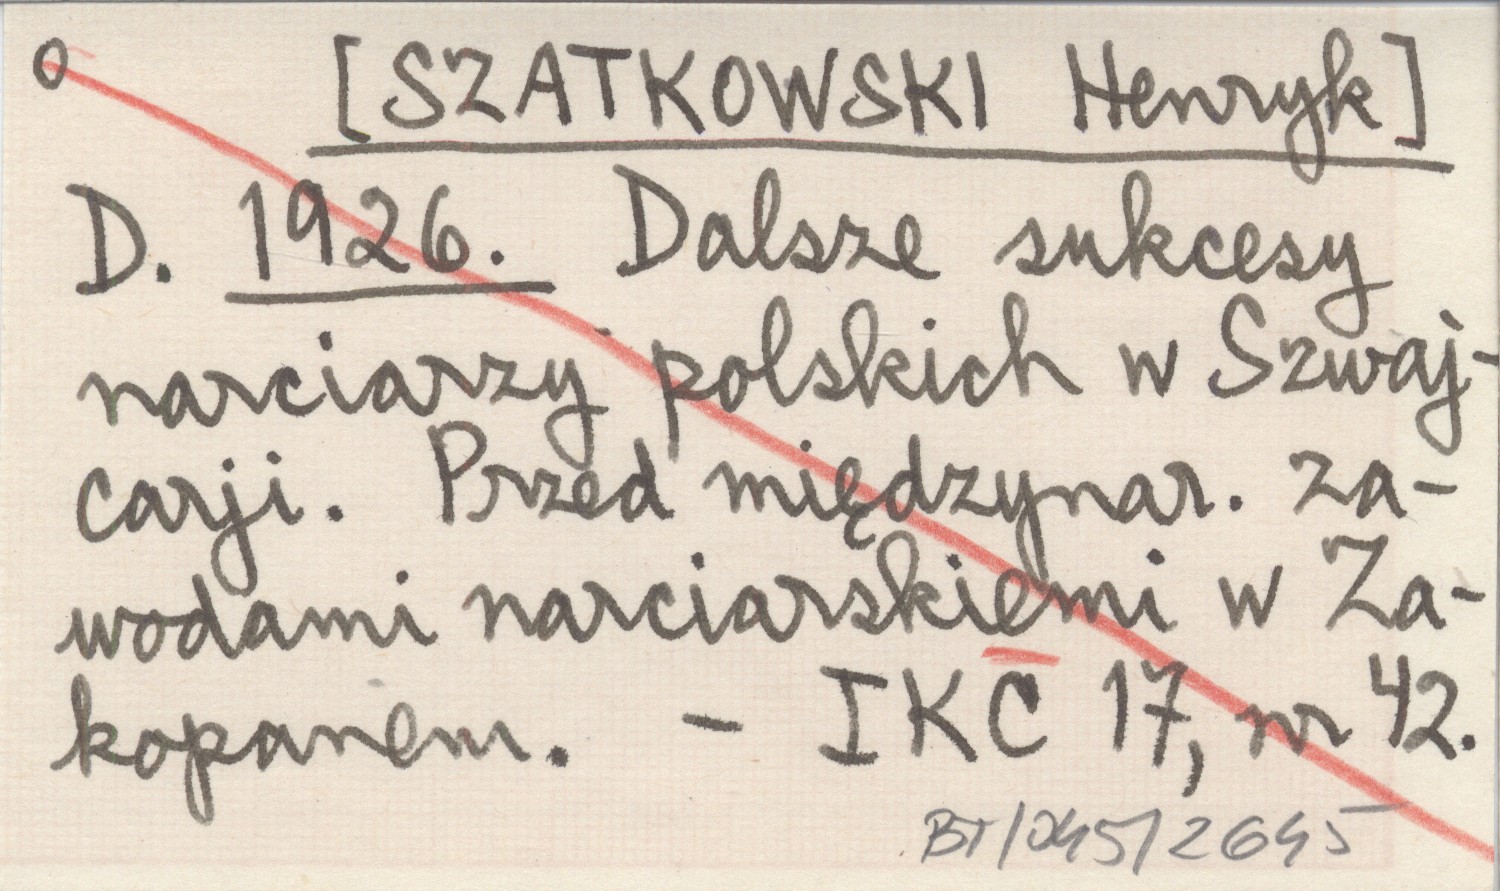 [SZATKOWSKI Henryk]
D. 1926. Dalsze sukcesy
narciarzy polskich w Szwaj-
carji. Przed międzynar. za-
wodami narciarskiemi w Za-
kopanem. - IKC 17, nr 42.
BT/045/2645